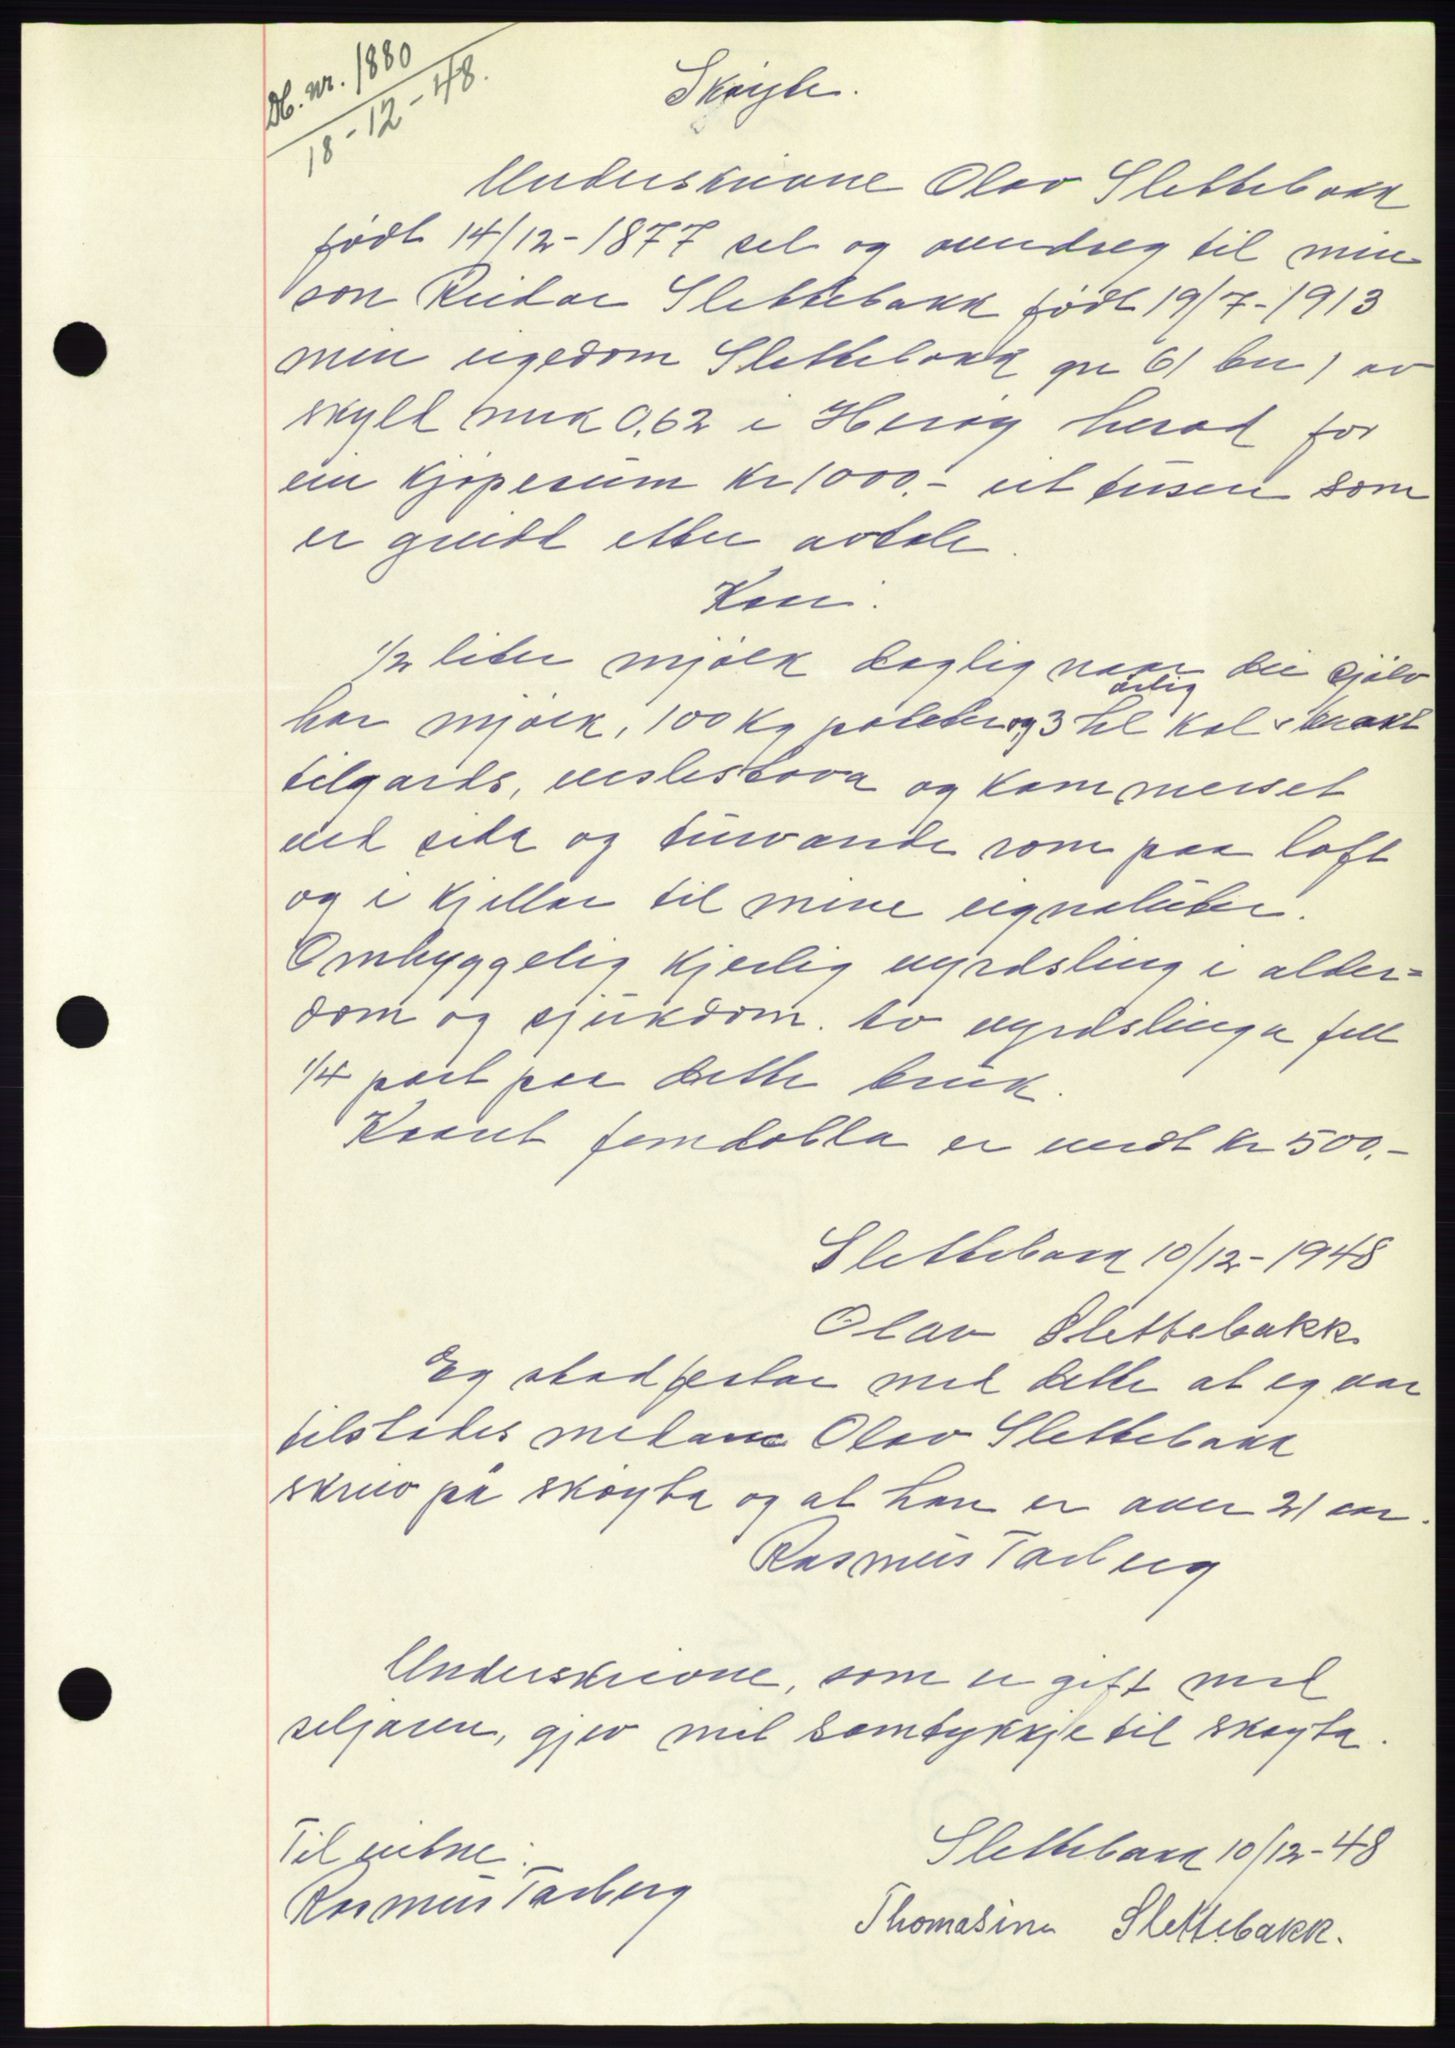 Db. nr. 1880
18-12-48.
Skøyte.
Underskrivne Olav Slettebakk
født 14/12-1877 sel og avendreg til min
son Reidar Slettebakk født 19/7-1913
min eigedom Slettebakk gnr 61 bnr 1 av
skyld mrk 0,62 i Herøy herad for
ein kjøpesum kr 1000.- eit tusen som
er greidt etter avtale.
Kaar:
1/2 liter mjølk dagleg naar dei sjølv
har mjølk, 100 kg poteter og 3 hl kol årlig brakt
tilgards, veslestova og kammerset
ved sida og turvande rom paa loft
og i kjellar til mine eignaluter.
Omhyggelig kjerlig uyrdsling i alder=
dom og sjukdom. Av vyrdslinga fell
1/4 part paa dette bruk.
Kaaret femdobla er verdt kr 500.-
Slettebakk 10/12-1948
Olav Slettebakk
Eg stadfestar med dette at eg var
tilstades medan Olav Slettebakk
skreiv på skøyta og at han er over 21 aar.
Rasmus Tarberg
Underskrivne, som er gift med
seljaren, gjev mit samtykkje til skøyta.
Til vitne:
Rasmus Tarberg
Slettebakk 10/12-48
Thomasine Slettebakk.